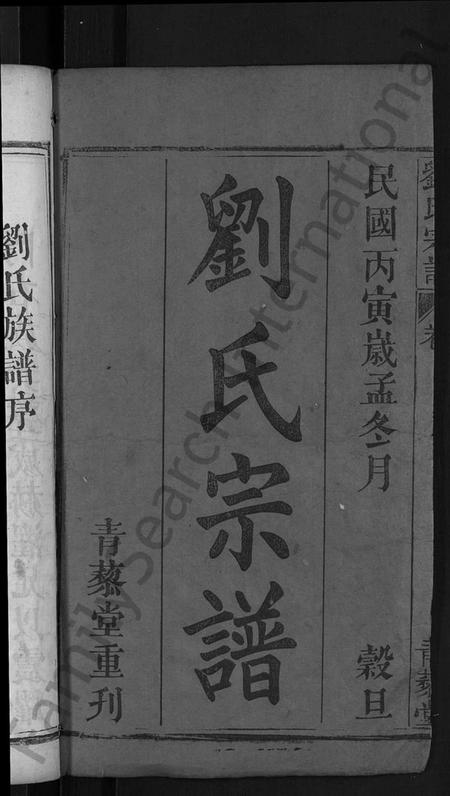 劉氏宗譜
卷
青藜堂
民國丙寅歲孟冬月
穀旦
劉氏宗譜
青藜堂重刊
劉氏族譜序
FamilySearch International